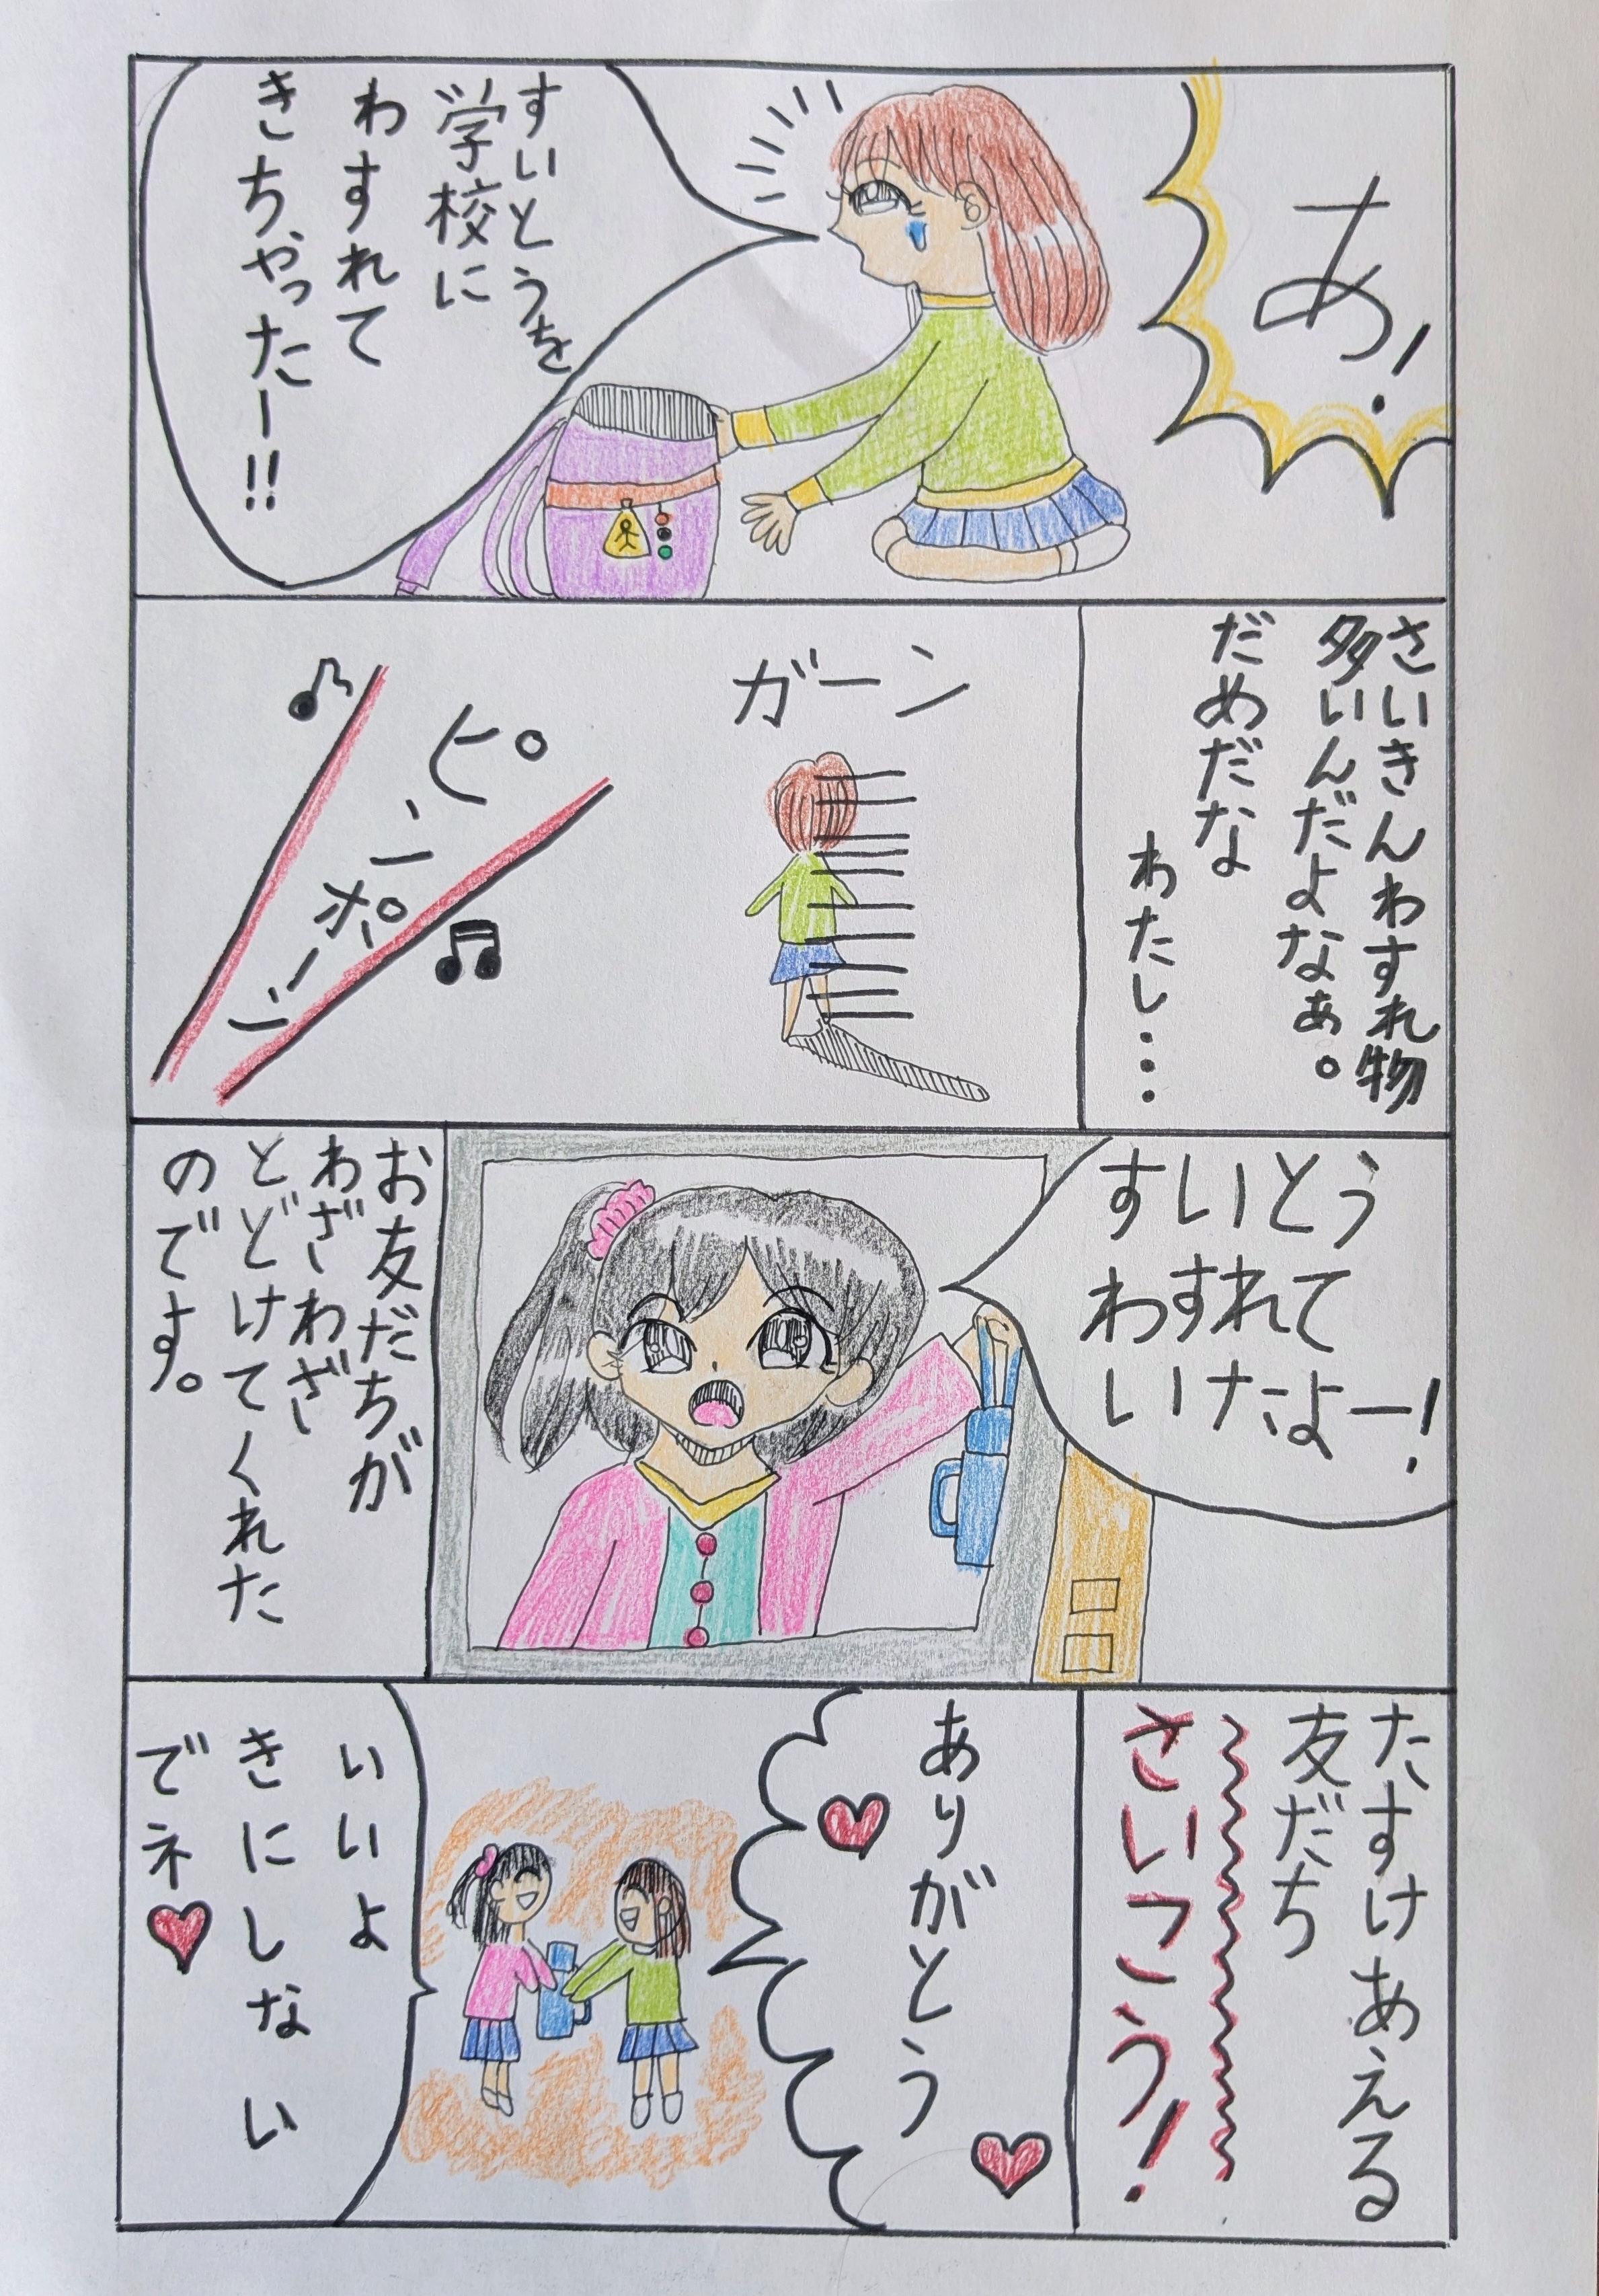 あ!
すいとうを
学校に
わすれて
きちゃったー!!
さいきんわすれ物
多いんだよなぁ。
だめだな
わたし…
ガーン
ピンポーン
すいとう
わすれて
いけたよー!
お友だちが
わざわざ
とどけてくれた
のです。
たすけあえる
友だち
さいこう!
ありがとう
いいよ
きにしない
でネ